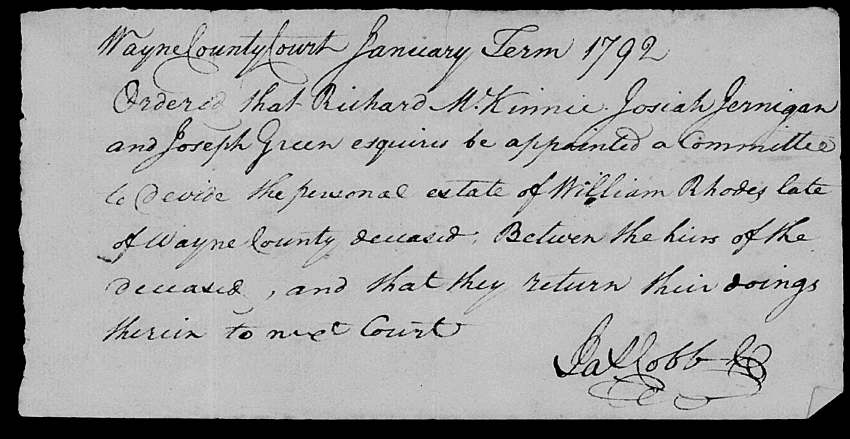 Wayne County Court January Term 1792
Ordered that Richard McKinnie Josiah Jernigan
and Joseph Green esquires be appointed a Committee
to devide the personal estate of William Rhodes late
of Wayne County deceased, Betwen the heirs of the
deceased, and that they return their doings
therein to next Court
Jas Cobb